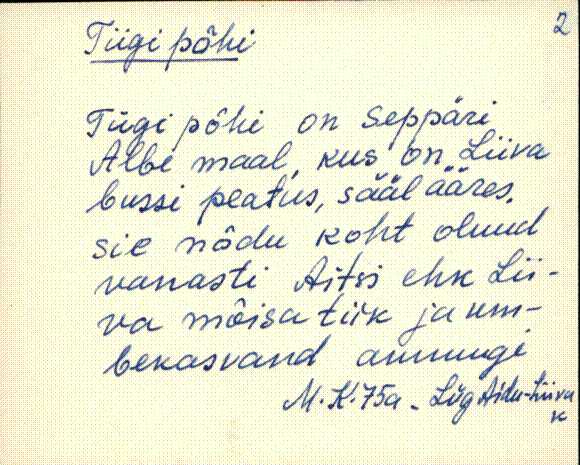 2
Tiigi põhi
Tiigi põhi on Seppäri
Albe maal, kus on Liiva
bussi peatus, sääl ääres.
sie nõdu koht olnud
vanasti Aitsi ehk Lii-
va mõisa tiik ja um-
bekasvand ammugi
M. K. 75a. Lüg Aidu-Liiva
k